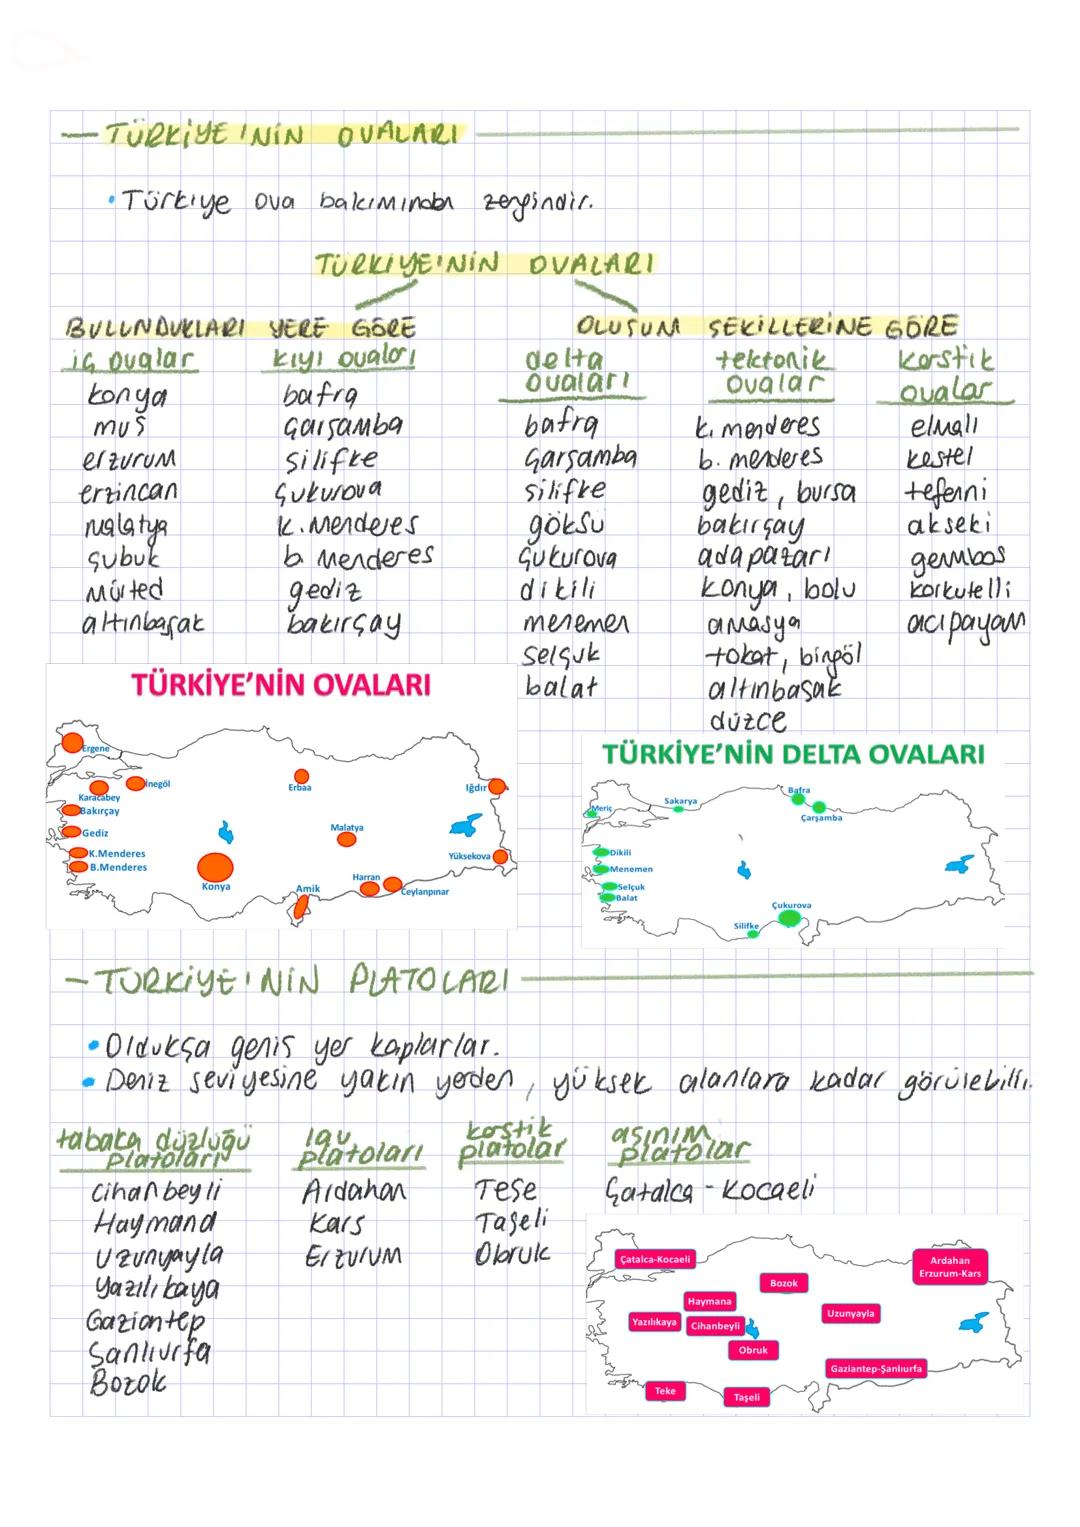 — TÜRKİYE'NİN OVALARI
• Türkiye ova bakımından zengindir.
TÜRKİYE'NİN OVALARI
BULUNDUKLARI YERE GÖRE
OLUŞUM ŞEKİLLERİNE GÖRE
iç ovalar
konya
muş
erzurum
erzincan
malatya
çubuk
mürted
altınbaşak
kıyı ovaları
bafra
çarşamba
silifke
çukurova
k. menderes
b. menderes
gediz
bakırçay
delta
ovaları
bafra
çarşamba
silifke
göksu
çukurova
dikili
menemen
selçuk
balat
tektonik
ovalar
k. menderes
b. menderes
gediz, bursa
bakırçay
adapazarı
konya, bolu
amasya
tokat, bingöl
altınbaşak
düzce
karstik
ovalar
elmalı
kestel
tefenni
akseki
gembos
korkutelli
acıpayam
TÜRKİYE'NİN OVALARI
Ergene
İnegöl
Karacabey
Bakırçay
Gediz
K.Menderes
B.Menderes
Konya
Erbaa
Malatya
Amik
Harran
Ceylanpınar
Iğdır
Yüksekova
TÜRKİYE'NİN DELTA OVALARI
Meriç
Sakarya
Bafra
Çarşamba
Dikili
Menemen
Selçuk
Balat
Çukurova
Silifke
— TÜRKİYE'NİN PLATOLARI
• Oldukça geniş yer kaplarlar.
• Deniz seviyesine yakın yerden, yüksek alanlara kadar görülebilir.
tabaka düzlüğü
platoları
cihanbeyli
Haymana
Uzunyayla
Yazılıkaya
Gaziantep
Şanlıurfa
Bozok
lav
platoları
Ardahan
Kars
Erzurum
karstik
platolar
Teşe
Taşeli
Obruk
aşınım
platolar
Çatalca - Kocaeli
Çatalca-Kocaeli
Ardahan
Erzurum-Kars
Bozok
Haymana
Uzunyayla
Yazılıkaya
Cihanbeyli
Obruk
Gaziantep-Şanlıurfa
Teke
Taşeli